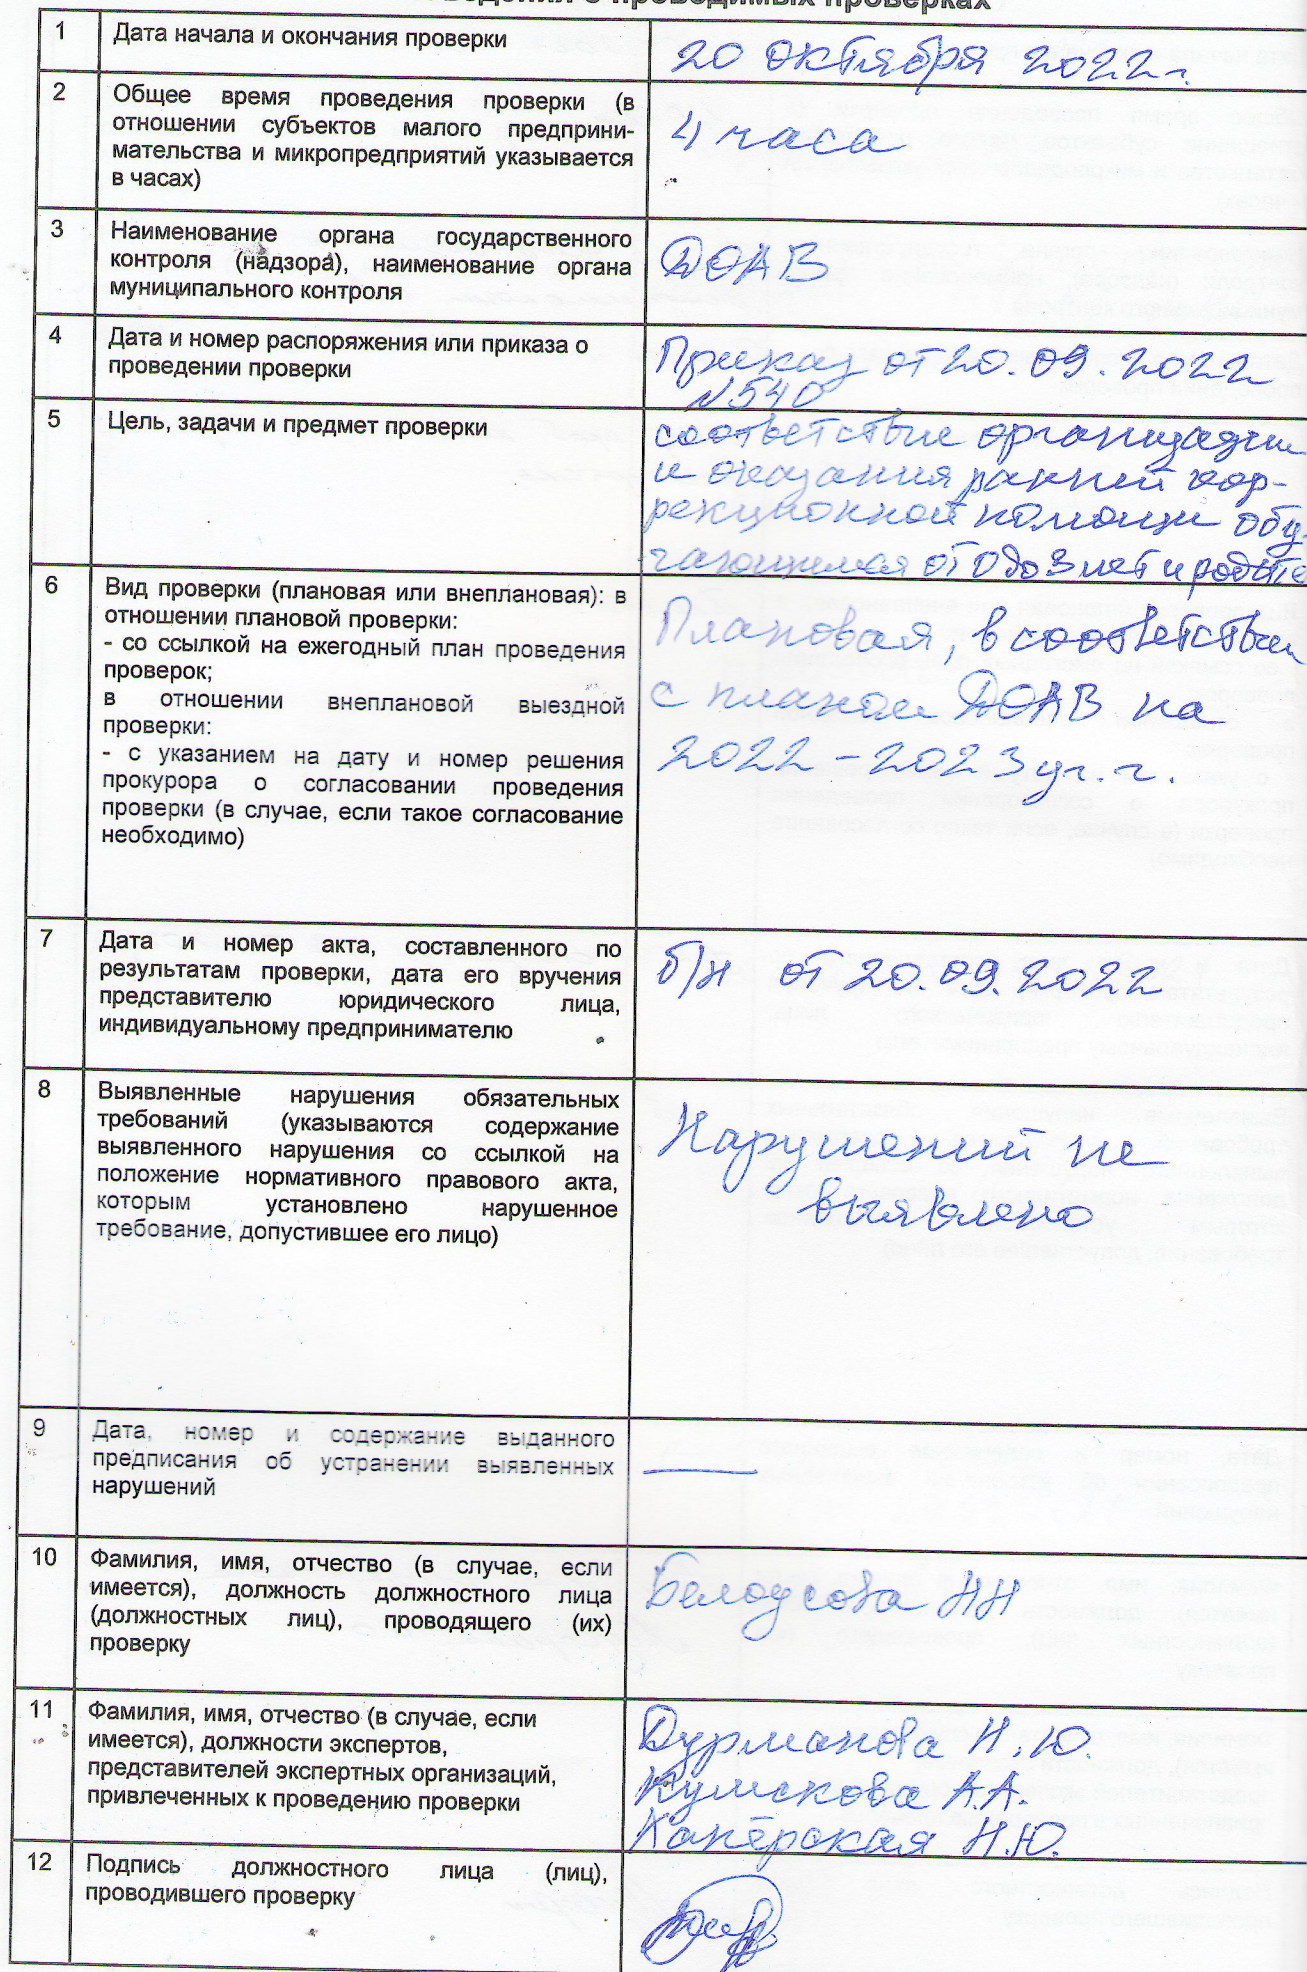 проводимых проверках
1
Дата начала и окончания проверки
20 октября 2022г.
2
Общее время проведения проверки (в
отношении субъектов малого предприни-
мательства и микропредприятий указывается
в часах)
4 часа
3
Наименование органа государственного
контроля (надзора), наименование органа
муниципального контроля
ДОАВ
4
Дата и номер распоряжения или приказа о
проведении проверки
Приказ от 20.09.2022
№540
5
Цель, задачи и предмет проверки
соответствие организации
и оказания ранней кор-
рекционной помощи обу-
чающимся от 0 до 3 лет и
6
Вид проверки (плановая или внеплановая): в
отношении плановой проверки:
- со ссылкой на ежегодный план проведения
проверок;
в отношении внеплановой выездной
проверки:
- с указанием на дату и номер решения
прокурора о согласовании проведения
проверки (в случае, если такое согласование
необходимо)
Плановая, в соответствии
с планом ДОАВ на
2022-2023 уч. г.
7
Дата и номер акта, составленного по
результатам проверки, дата его вручения
представителю юридического лица,
индивидуальному предпринимателю
б/н от 20.09.2022
8
Выявленные нарушения обязательных
требований (указываются содержание
выявленного нарушения со ссылкой на
положение нормативного правового акта,
которым установлено нарушенное
требование, допустившее его лицо)
Нарушений не
выявлено
9
Дата, номер и содержание выданного
предписания об устранении выявленных
нарушений
10
Фамилия, имя, отчество (в случае, если
имеется), должность должностного лица
(должностных лиц), проводящего (их)
проверку
Белоусова НН
11
Фамилия, имя, отчество (в случае, если
имеется), должности экспертов,
представителей экспертных организаций,
привлеченных к проведению проверки
Дурманова Н.Ю.
Кумскова А.А.
Каперская Н.Ю.
12
Подпись должностного лица (лиц),
проводившего проверку